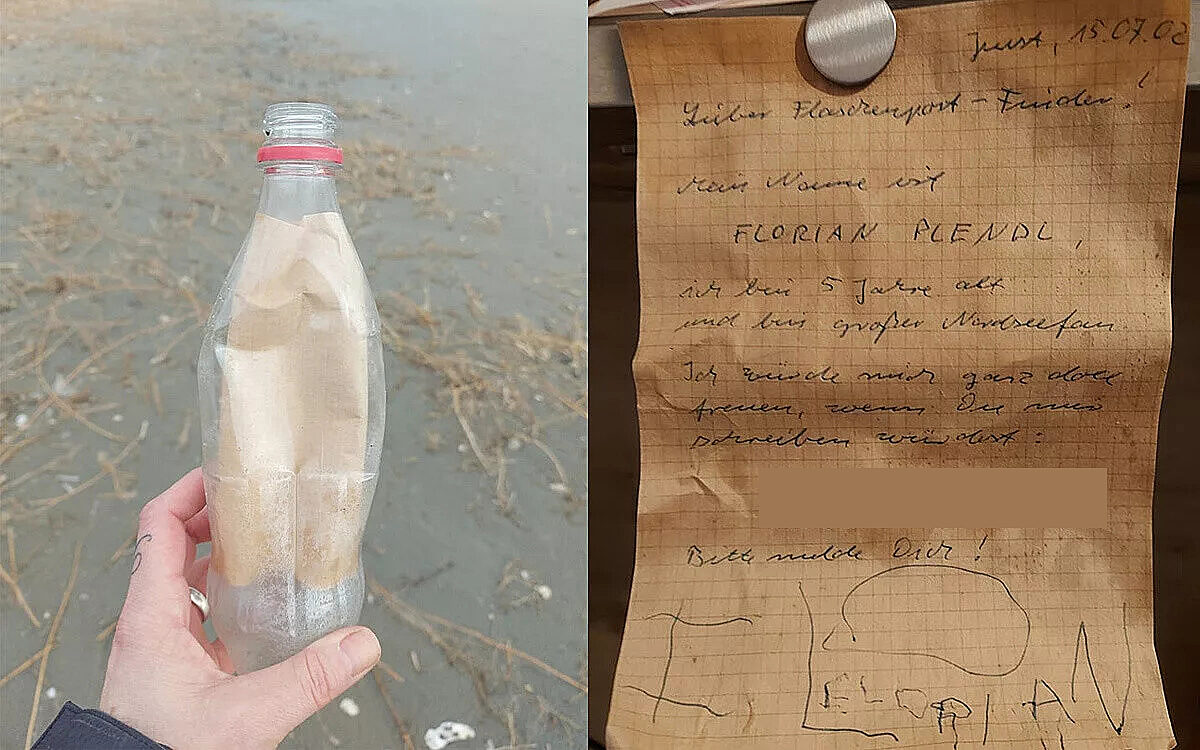 Juist, 15.07.02
Lieber Flaschenpost-Finder!
mein Name ist
FLORIAN PLENDL,
ich bin 5 Jahre alt
und bin großer Nordseefan.
Ich würde mich ganz doll
freuen, wenn Du mir
schreiben würdest:
Bitte melde Dich!
FLORIAN